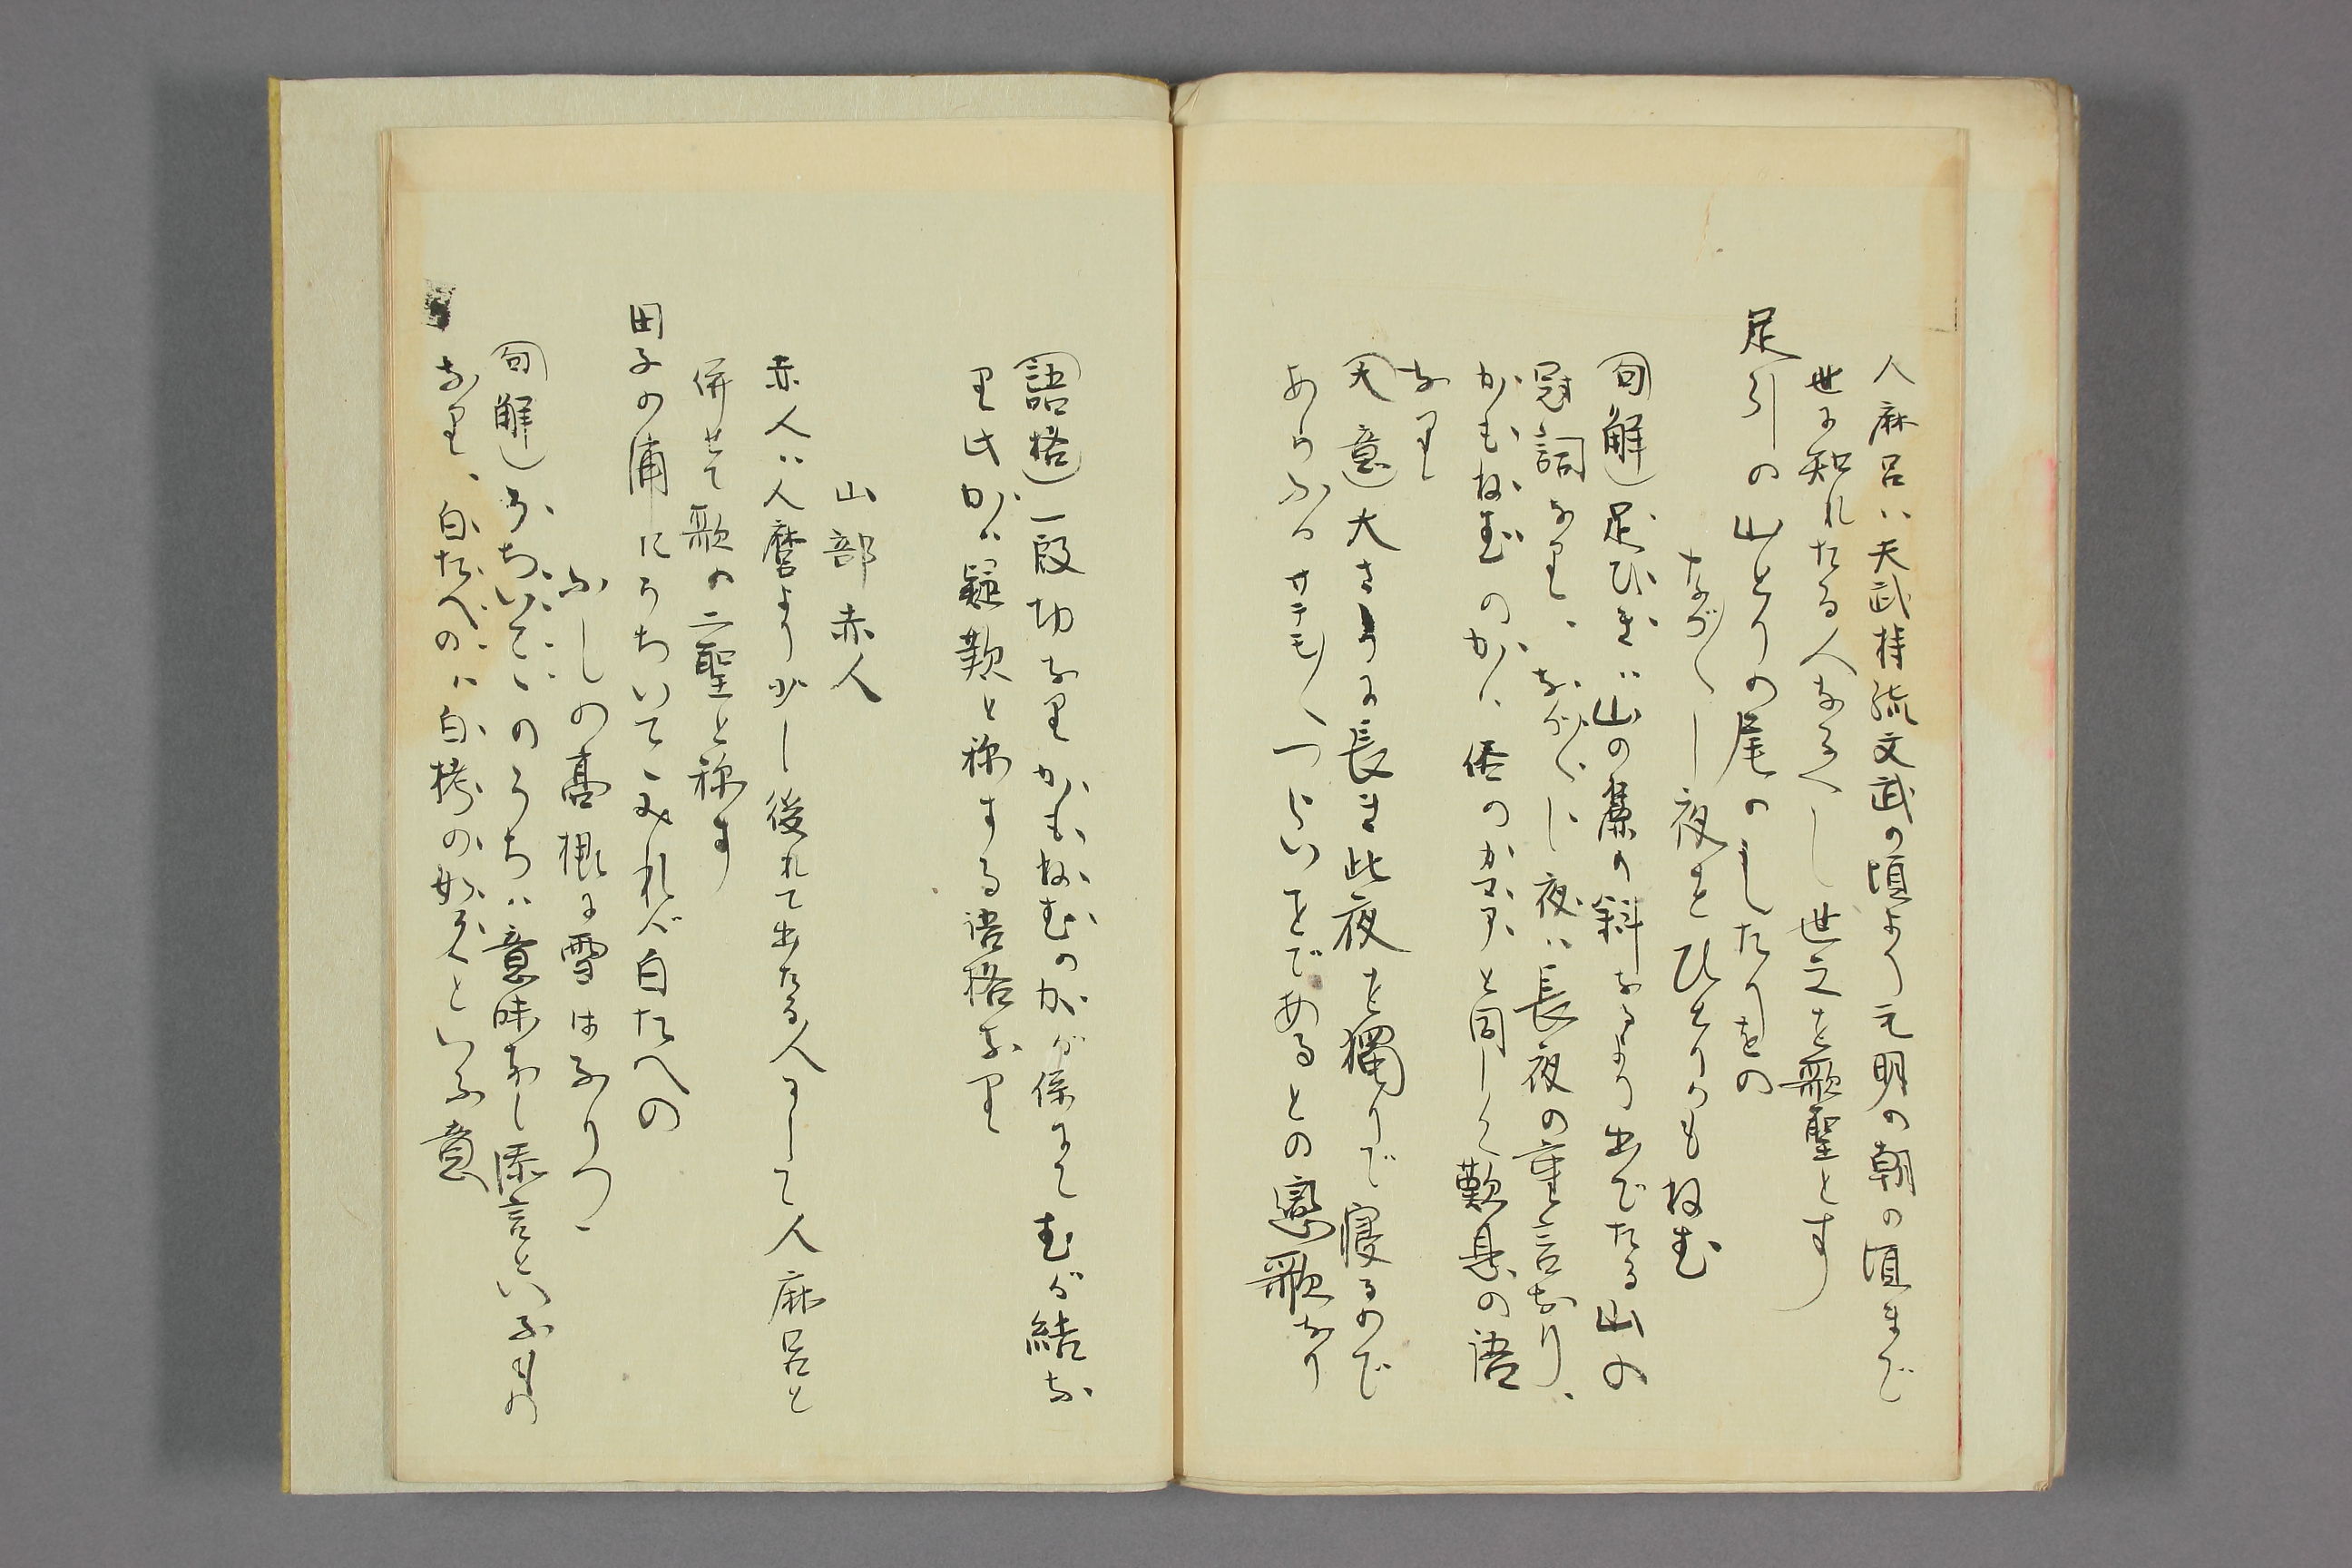 人麻呂ハ天武持統文武の頃より元明の朝の頃まで
世に知れたる人なるべし世之を歌聖とす
足引の山とりの尾のしたりをの
なが〳〵し夜をひとりかもねむ
(句解)足びきハ山の麓の斜なるより出でたる山の
冠詞なり、なが〳〵し夜ハ長夜の重言なり、
かもねむのかハ俗のカマアと同しく歎息の語
なり
(大意)大さうに長き此夜を獨りで寝るので
あらふかサテモ〳〵つらいことであるとの戀歌なり
(語格)一段切なりかもねむのかが係にてむが結な
り此かハ疑歎と称する語格なり
山部赤人
赤人ハ人麿より少し後れて出たる人にして人麻呂と
併せて歌の二聖と称す
田子の浦にうちいでゝみれば白たへの
ふしの高根に雪はふりつゝ
(句解)うちいでゝのうちハ意味なし添言といふもの
なり、白たへのハ白栲の如くといふ意